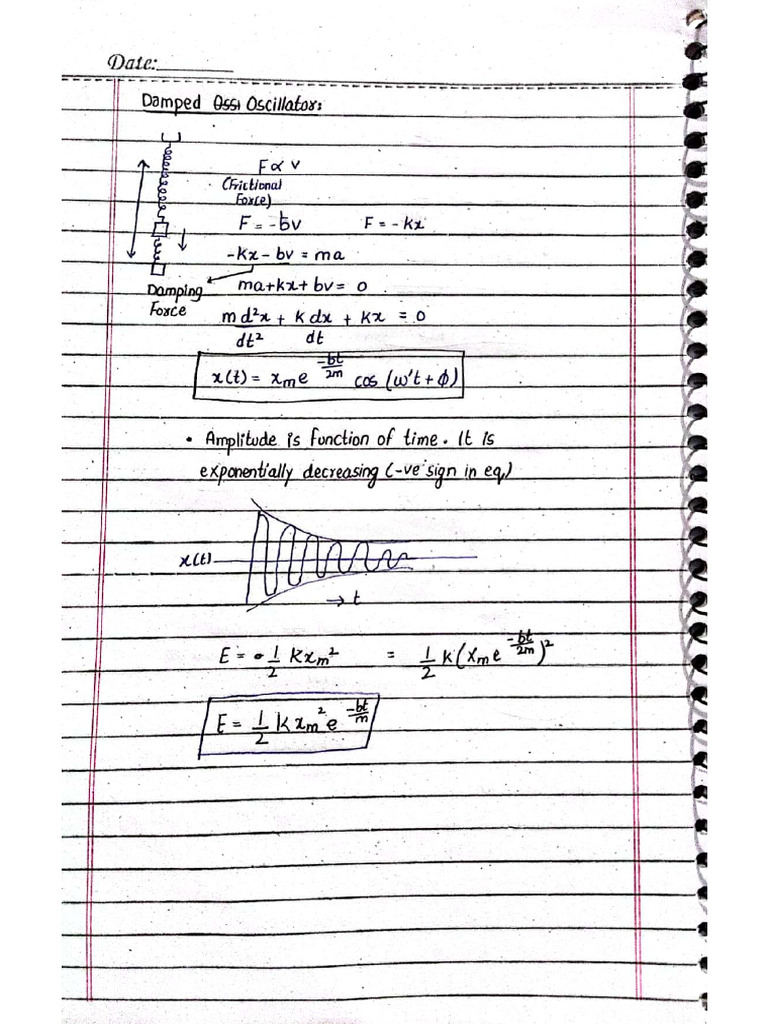 Date:
Damped Ossi Oscillator:
F ∝ v
(Frictional
Force)
F = -bv F = -kx
-kx - bv = ma
Damping
Force
ma + kx + bv = 0
m d²x/dt² + k dx/dt + kx = 0
x(t) = xₘe^(-bt/2m) cos (ω't + φ)
• Amplitude is function of time. It is
exponentially decreasing (-ve sign in eq)
x(t)
→ t
E = 1/2 kxₘ² = 1/2 k(xₘe^(-bt/2m))²
E = 1/2 kxₘ²e^(-bt/m)